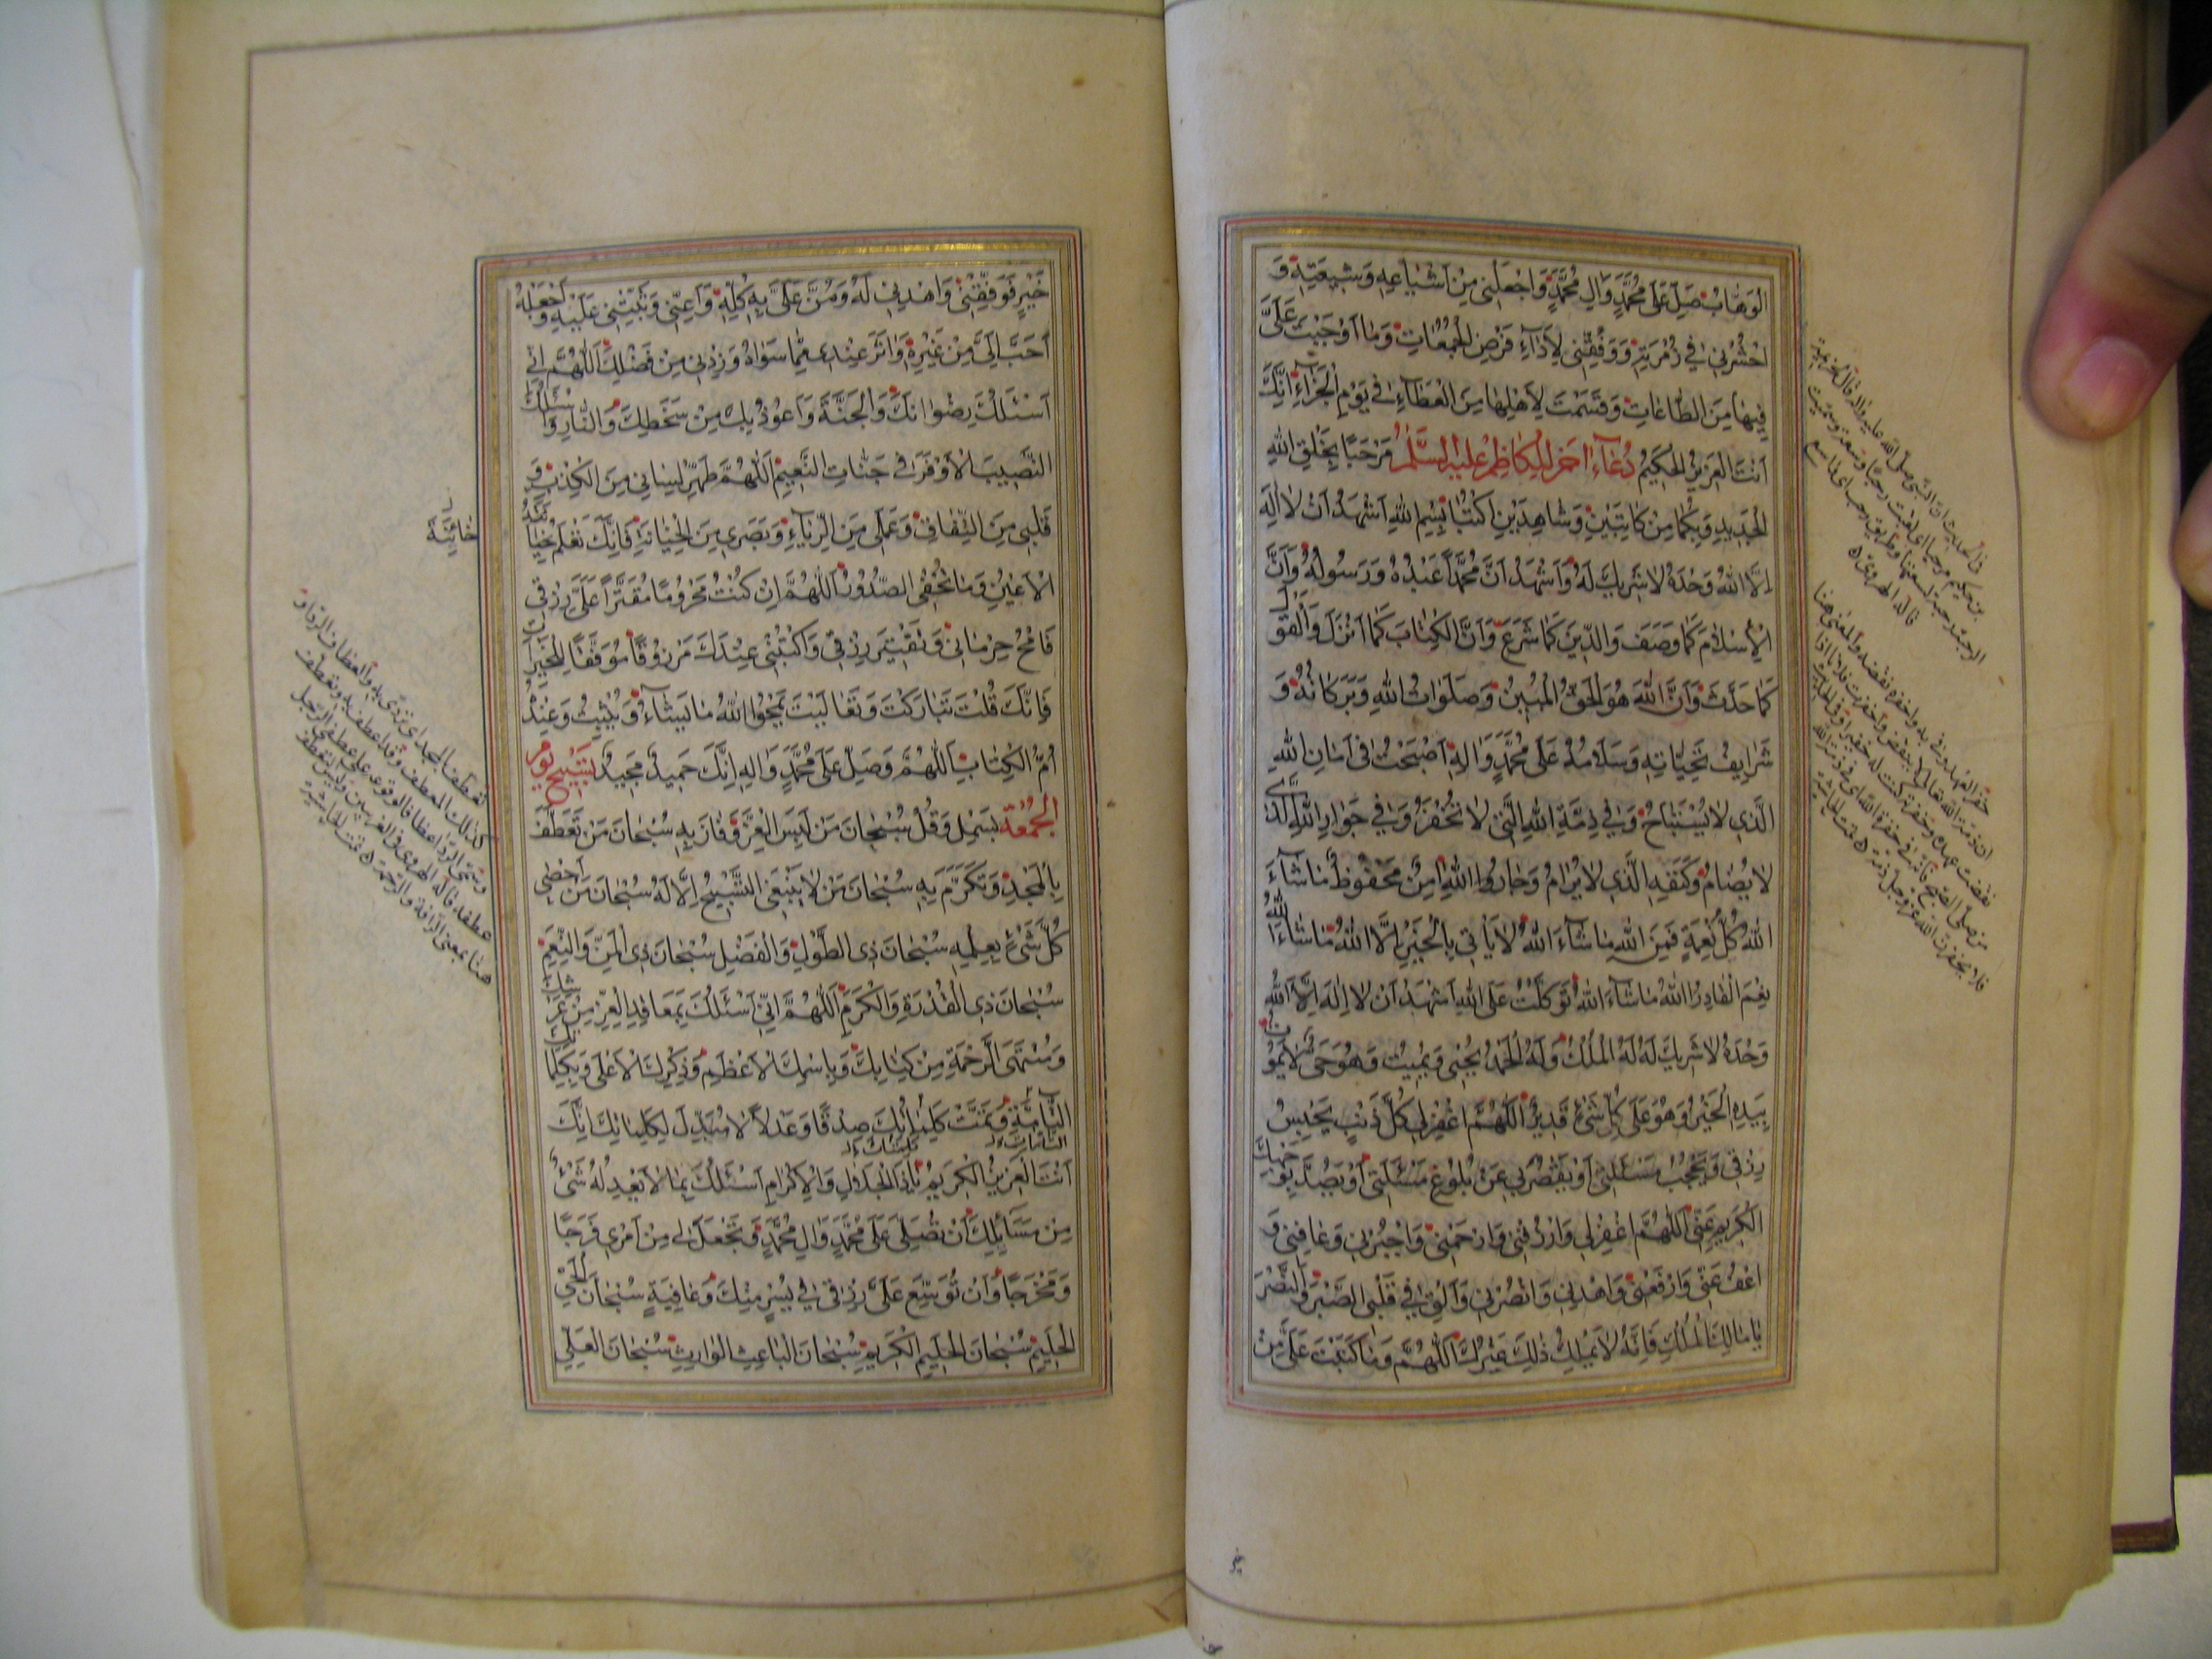 الْوَهَّابُ صَلِّ عَلَى مُحَمَّدٍ وَآلِ مُحَمَّدٍ وَاجْعَلْنِي مِنْ اَشْيَاعِهِ وَشِيعَتِهِ وَ
احْشُرْنِي فِي زُمْرَتِهِ وَوَفِّقْنِي لِاَدَاءِ فَرْضِ الْجُمُعَاتِ وَمَا اَوْجَبْتَ عَلَيَّ
فِيهَا مِنَ الطَّاعَاتِ وَقَسَمْتَ لِاَهْلِهَا مِنَ الْعَطَآءِ فِي يَوْمِ الْجَزَآءِ اِنَّكَ
اَنْتَ الْعَزِيزُ الْحَكِيمُ دُعَآءٌ آخَرُ لِلْكَاظِمِ عَلَيْهِ السَّلَامُ مَرْحَبًا بِخَلْقِ اللهِ
الْجَدِيدِ وَبِكُمَا مِنْ كَاتِبَيْنِ وَشَاهِدَيْنِ اكْتُبَا بِسْمِ اللهِ اَشْهَدُ اَنْ لَا اِلَهَ
اِلَّا اللهُ وَحْدَهُ لَا شَرِيكَ لَهُ وَاَشْهَدُ اَنَّ مُحَمَّدًا عَبْدُهُ وَرَسُولُهُ وَاَنَّ
الْاِسْلَامَ كَمَا وَصَفَ وَالدِّينَ كَمَا شَرَعَ وَاَنَّ الْكِتَابَ كَمَا اَنْزَلَ وَالْقَوْلَ
كَمَا حَدَّثَ وَاَنَّ اللهَ هُوَ الْحَقُّ الْمُبِينُ وَصَلَوَاتُ اللهِ وَبَرَكَاتُهُ وَ
شَرَايِفُ تَحِيَّاتِهِ وَسَلَامُهُ عَلَى مُحَمَّدٍ وَآلِهِ اَصْبَحْتُ فِي اَمَانِ اللهِ
الَّذِي لَا يُسْتَبَاحُ وَفِي ذِمَّةِ اللهِ الَّتِي لَا تُخْفَرُ وَفِي جِوَارِ اللهِ الَّذِي
لَا يُضَامُ وَكَنَفِهِ الَّذِي لَا يُرَامُ وَجَارُ اللهِ آمِنٌ مَحْفُوظٌ مَا شَآءَ
اللهُ كُلُّ نِعْمَةٍ فَمِنَ اللهِ مَا شَآءَ اللهُ لَا يَأْتِي بِالْخَيْرِ اِلَّا اللهُ مَا شَآءَ اللهُ
نِعْمَ الْقَادِرُ اللهُ مَا شَآءَ اللهُ تَوَكَّلْتُ عَلَى اللهِ اَشْهَدُ اَنْ لَا اِلَهَ اِلَّا اللهُ
وَحْدَهُ لَا شَرِيكَ لَهُ لَهُ الْمُلْكُ وَلَهُ الْحَمْدُ يُحْيِي وَيُمِيتُ وَهُوَ حَيٌّ لَا يَمُوتُ
بِيَدِهِ الْخَيْرُ وَهُوَ عَلَى كُلِّ شَيْءٍ قَدِيرٌ اَللّٰهُمَّ اغْفِرْ لِي كُلَّ ذَنْبٍ يَحْبِسُ
رِزْقِي وَيَحْجُبُ مَسْئَلَتِي اَوْ يَقْصُرُ بِي عَنْ بُلُوغِ مَسْئَلَتِي اَوْ يَصُدُّ بِوَجْهِكَ
الْكَرِيمِ عَنِّي اَللّٰهُمَّ اغْفِرْ لِي وَارْزُقْنِي وَارْحَمْنِي وَاجْبُرْنِي وَعَافِنِي وَ
اعْفُ عَنِّي وَارْفَعْنِي وَاهْدِنِي وَانْصُرْنِي وَاَلْقِ فِي قَلْبِي الصَّبْرَ وَالنَّصْرَ
يَا مَالِكَ الْمُلْكِ فَاِنَّهُ لَا يَمْلِكُ ذَلِكَ غَيْرُكَ اَللّٰهُمَّ وَمَا كَتَبْتَ عَلَيَّ مِنْ
خَيْرٍ فَوَفِّقْنِي وَاهْدِنِي لَهُ وَمُنَّ عَلَيَّ بِهِ كُلِّهِ وَاَعِنِّي وَثَبِّتْنِي عَلَيْهِ وَاجْعَلْهُ
اَحَبَّ اِلَيَّ مِنْ غَيْرِهِ وَآثَرَ عِنْدِي مِمَّا سِوَاهُ وَزِدْنِي مِنْ فَضْلِكَ اَللّٰهُمَّ اِنِّي
اَسْئَلُكَ رِضْوَانَكَ وَالْجَنَّةَ وَاَعُوذُ بِكَ مِنْ سَخَطِكَ وَالنَّارِ وَاَسْئَلُكَ
النَّصِيبَ الْاَوْفَرَ فِي جَنَّاتِ النَّعِيمِ اَللّٰهُمَّ طَهِّرْ لِسَانِي مِنَ الْكِذْبِ وَ
قَلْبِي مِنَ النِّفَاقِ وَعَمَلِي مِنَ الرِّيَآءِ وَبَصَرِي مِنَ الْخِيَانَةِ فَاِنَّكَ تَعْلَمُ خِيَانَةَ
خَائِنَةَ
الْاَعْيُنِ وَمَا تُخْفِي الصُّدُورُ اَللّٰهُمَّ اِنْ كُنْتُ مَحْرُومًا مُقَتَّرًا عَلَيَّ رِزْقِي
فَامْحُ حِرْمَانِي وَتَقْتِيرَ رِزْقِي وَاكْتُبْنِي عِنْدَكَ مَرْزُوقًا مُوَفَّقًا لِلْخَيْرَاتِ
فَاِنَّكَ قُلْتَ تَبَارَكْتَ وَتَعَالَيْتَ يَمْحُوا اللهُ مَا يَشَآءُ وَيُثْبِتُ وَعِنْدَهُ
اُمُّ الْكِتَابِ اَللّٰهُمَّ وَصَلِّ عَلَى مُحَمَّدٍ وَآلِهِ اِنَّكَ حَمِيدٌ مَجِيدٌ تَسْبِيحُ يَوْمِ
الْجُمُعَةِ بَسْمِلْ وَقُلْ سُبْحَانَ مَنْ لَبِسَ الْعِزَّ وَفَازَ بِهِ سُبْحَانَ مَنْ تَعَطَّفَ
بِالْمَجْدِ وَتَكَرَّمَ بِهِ سُبْحَانَ مَنْ لَا يَنْبَغِي التَّسْبِيحُ اِلَّا لَهُ سُبْحَانَ مَنْ اَحْصَى
كُلَّ شَيْءٍ بِعِلْمِهِ سُبْحَانَ ذِي الطَّوْلِ وَالْفَضْلِ سُبْحَانَ ذِي الْمَنِّ وَالنِّعَمِ
سُبْحَانَ ذِي الْقُدْرَةِ وَالْكَرَمِ اَللّٰهُمَّ اِنِّي اَسْئَلُكَ بِمَعَاقِدِ الْعِزِّ مِنْ عَرْشِكَ
وَمُنْتَهَى الرَّحْمَةِ مِنْ كِتَابِكَ وَبِاسْمِكَ الْاَعْظَمِ وَذِكْرِكَ الْاَعْلَى وَبِكَلِمَاتِكَ
التَّامَّةِ وَتَمَّتْ كَلِمَاتُكَ صِدْقًا وَعَدْلًا لَا مُبَدِّلَ لِكَلِمَاتِكَ اِنَّكَ
اَنْتَ الْعَزِيزُ الْكَرِيمُ يَا ذَا الْجَلَالِ وَالْاِكْرَامِ اَسْئَلُكَ بِمَا لَا يَعْدِلُهُ شَيْءٌ
مِنْ مَسَآئِلِكَ اَنْ تُصَلِّيَ عَلَى مُحَمَّدٍ وَآلِ مُحَمَّدٍ وَتَجْعَلَ لِي مِنْ اَمْرِي فَرَجًا
وَمَخْرَجًا وَاَنْ تُوَسِّعَ عَلَيَّ رِزْقِي فِي يُسْرٍ مِنْكَ وَعَافِيَةٍ سُبْحَانَ الْحَيِّ
الْحَلِيمِ سُبْحَانَ الْحَلِيمِ الْكَرِيمِ سُبْحَانَ الْبَاعِثِ الْوَارِثِ سُبْحَانَ الْعَلِيِّ